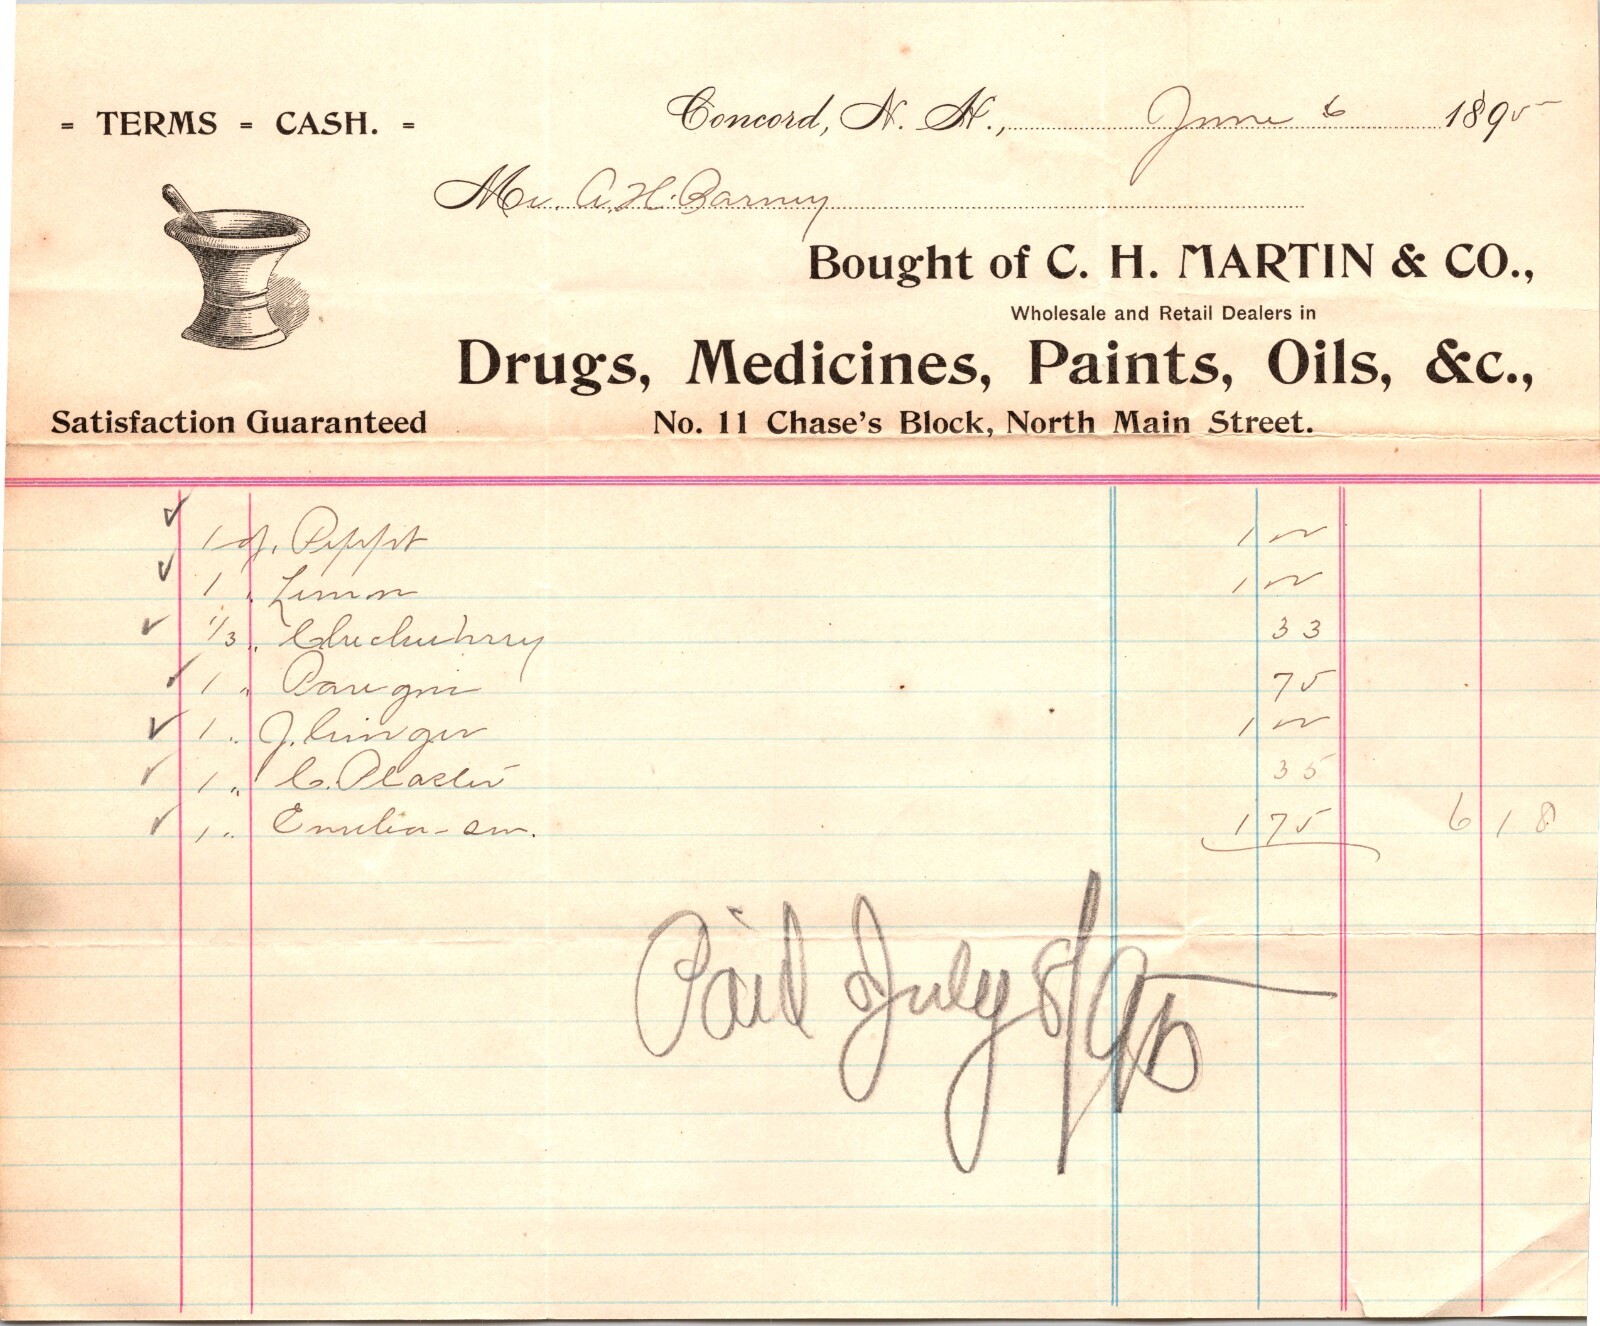 = TERMS = CASH. =
Concord, N. H., June 6 1895
Mr. A. H. Barney
Bought of C. H. MARTIN & CO.,
Wholesale and Retail Dealers in
Drugs, Medicines, Paints, Oils, &c.,
Satisfaction Guaranteed
No. 11 Chase's Block, North Main Street.
1 Peppt 1
1 " Lemon 1
1/3 " Checkerberry 33
1 " Paregoric 75
1 " J. Ginger 1
1 " C. Plaster 35
1 " 175 618
Paid July 8/95